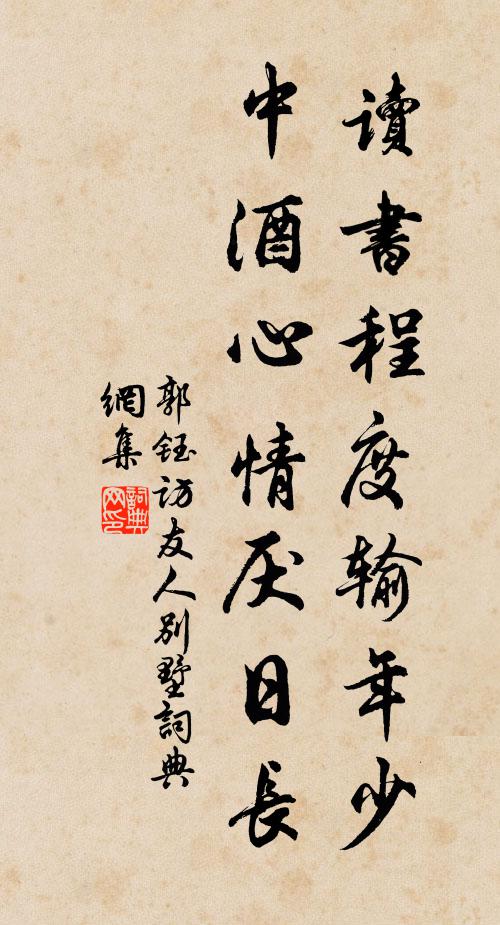 讀書程度輸年少
中酒心情厌日長
郭鈺访友人别墅詞典
網集
詞典网印